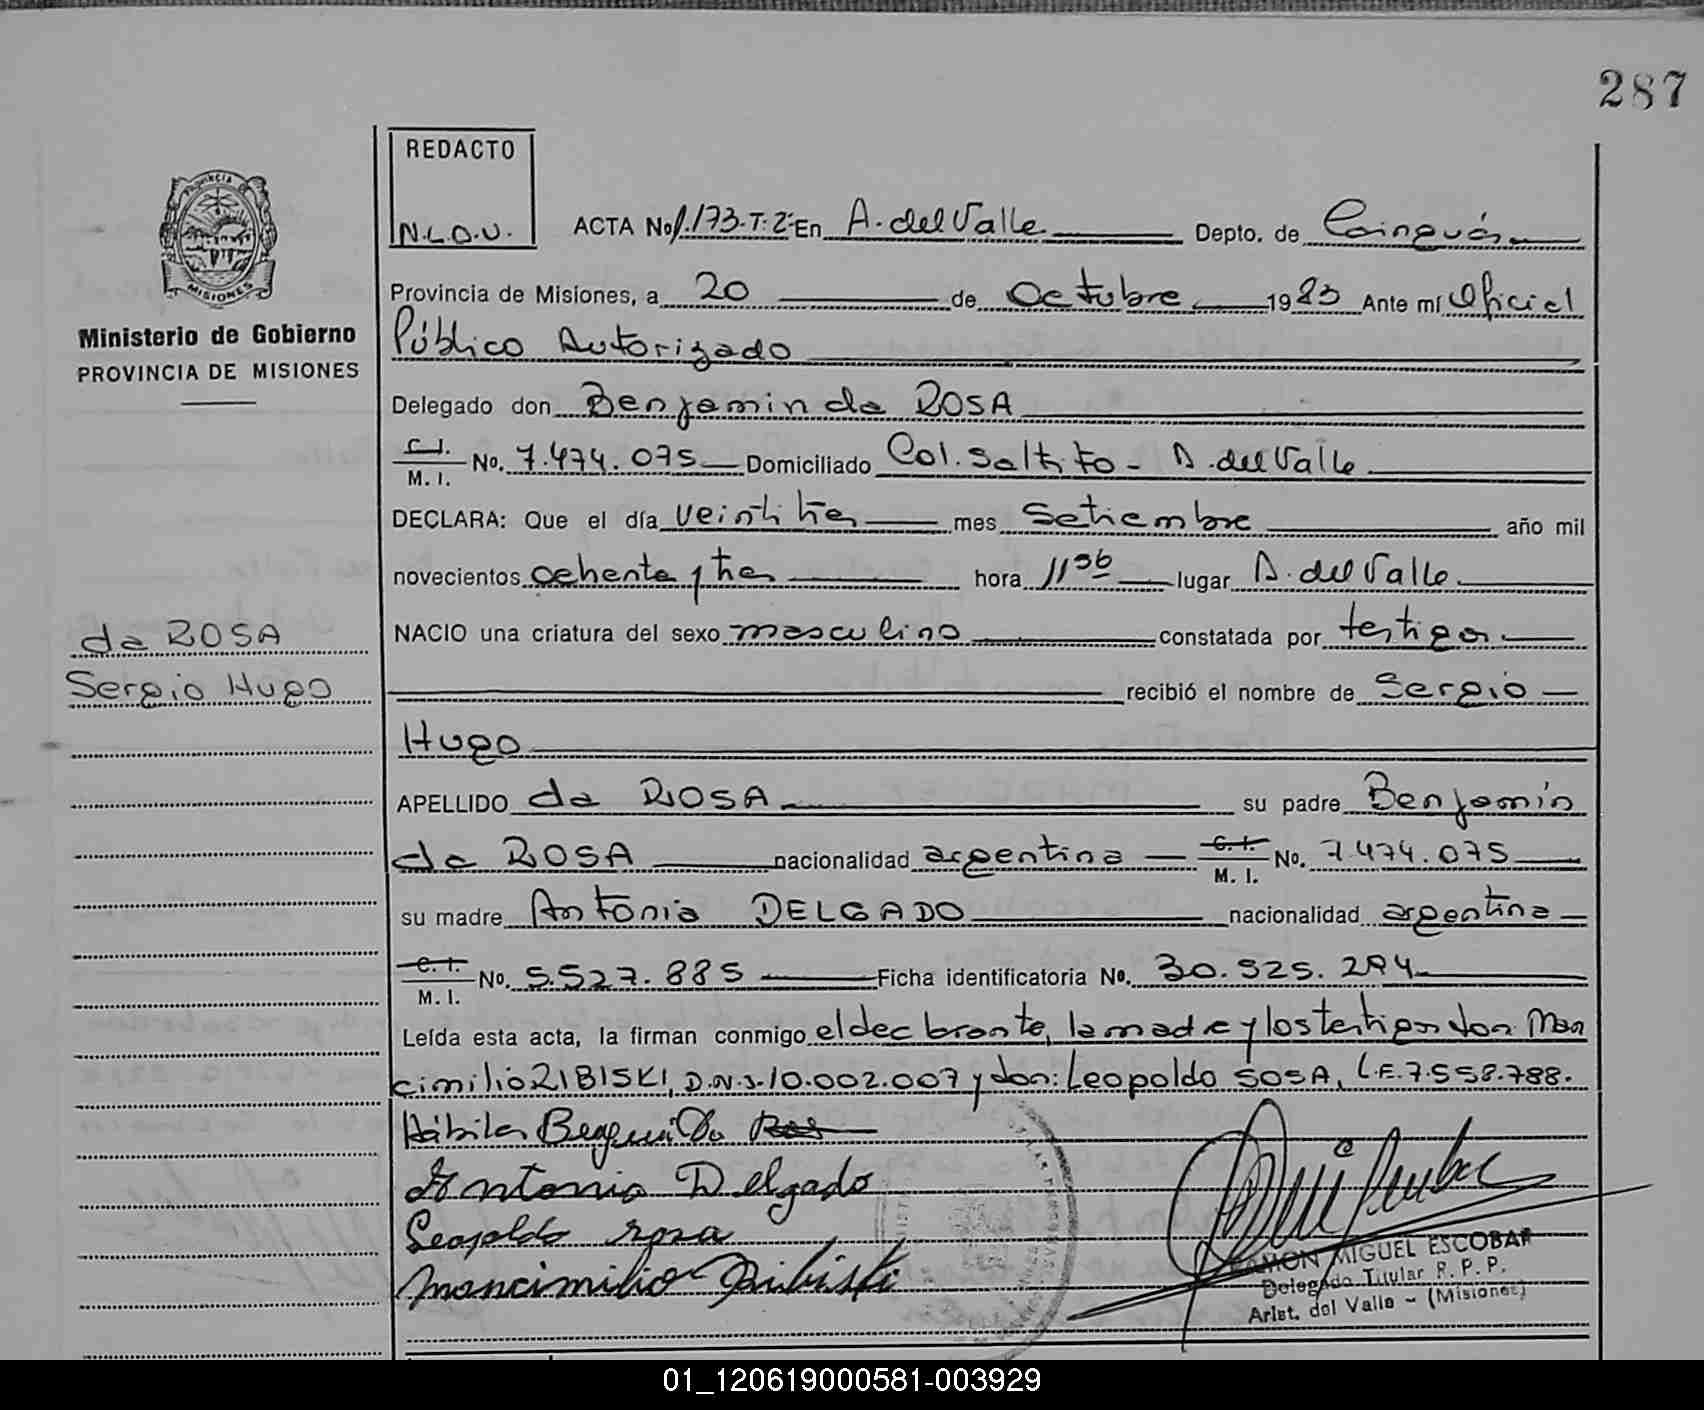 287
REDACTO
N.L.D.V.
PROVINCIA DE
MISIONES
Ministerio de Gobierno
PROVINCIA DE MISIONES
ACTA No 1.173-T:2- En A. del Valle Depto. de Cainguás
Provincia de Misiones, a 20 de Octubre 1983 Ante mí Oficial
Público Autorizado
Delegado don Benjamin da ROSA
C.I. M. I. No. 7.474.075 Domiciliado Col. Saltito - A. del Valle
DECLARA: Que el día veintitres mes Setiembre año mil
novecientos ochenta y tres hora 11 30 lugar A. del Valle
NACIO una criatura del sexo masculino constatada por testigos
recibió el nombre de Sergio
Hugo
da ROSA
Sergio Hugo
APELLIDO da ROSA su padre Benjamín
da ROSA nacionalidad argentina C.I. M. I. No. 7.474.075
su madre Antonia DELGADO nacionalidad argentina
C.I. M. I. No. 5.527.885 Ficha identificatoria No. 30.525.294
Leída esta acta, la firman conmigo el decbrante, la madre y los testigos don Man
cimilio ZIBISKI, D.N.I. 10.002.007 y don: Leopoldo SOSA, L.E. 7.558.788.
Hábiles
Antonia Delgado
Leopoldo sosa
Mancimilio Zibiski
RAMON MIGUEL ESCOBAR
Delegado Titular R. P. P.
Arist. del Valle - (Misiones)
01_120619000581-003929